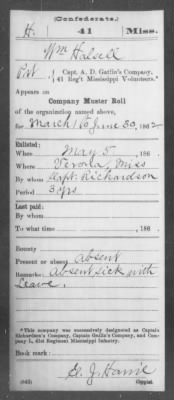 (Confederate.)
H. 41 Miss.
Wm Halsell
Pvt, Capt. A. D. Gatlin's Company,
41 Reg't Mississippi Volunteers.*
Appears on
Company Muster Roll
of the organization named above,
for March 1 to June 30, 1862
Enlisted:
When May 5, 186
Where Verona, Miss
By whom Capt. Richardson
Period 3 yrs
Last paid:
By whom
To what time , 186 .
Bounty
Present or absent Absent
Remarks: Absent sick with
Leave.
*This company was successively designated as Captain
Richardson's Company, Captain Gatlin's Company, and Com-
pany L, 41st Regiment Mississippi Infantry.
Book mark:
Copyist.